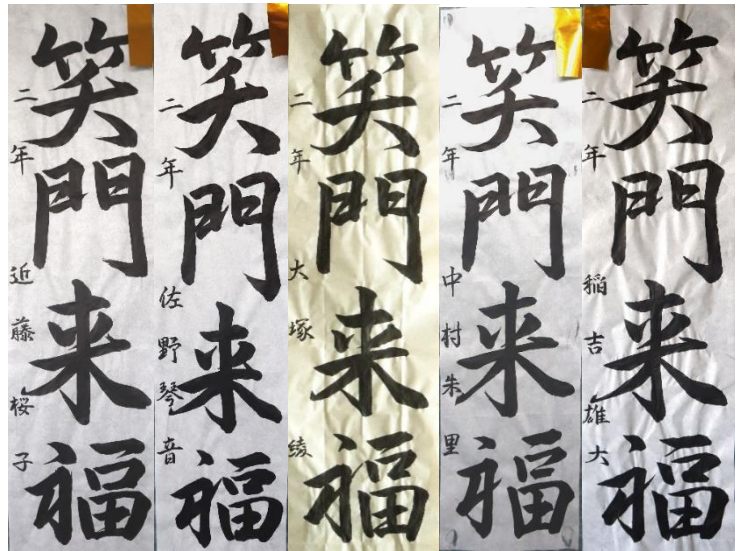 笑門来福
二年 近藤桜子
笑門来福
二年 佐野琴音
笑門来福
二年 大塚綾
笑門来福
二年 中村朱里
笑門来福
二年 稲吉雄大